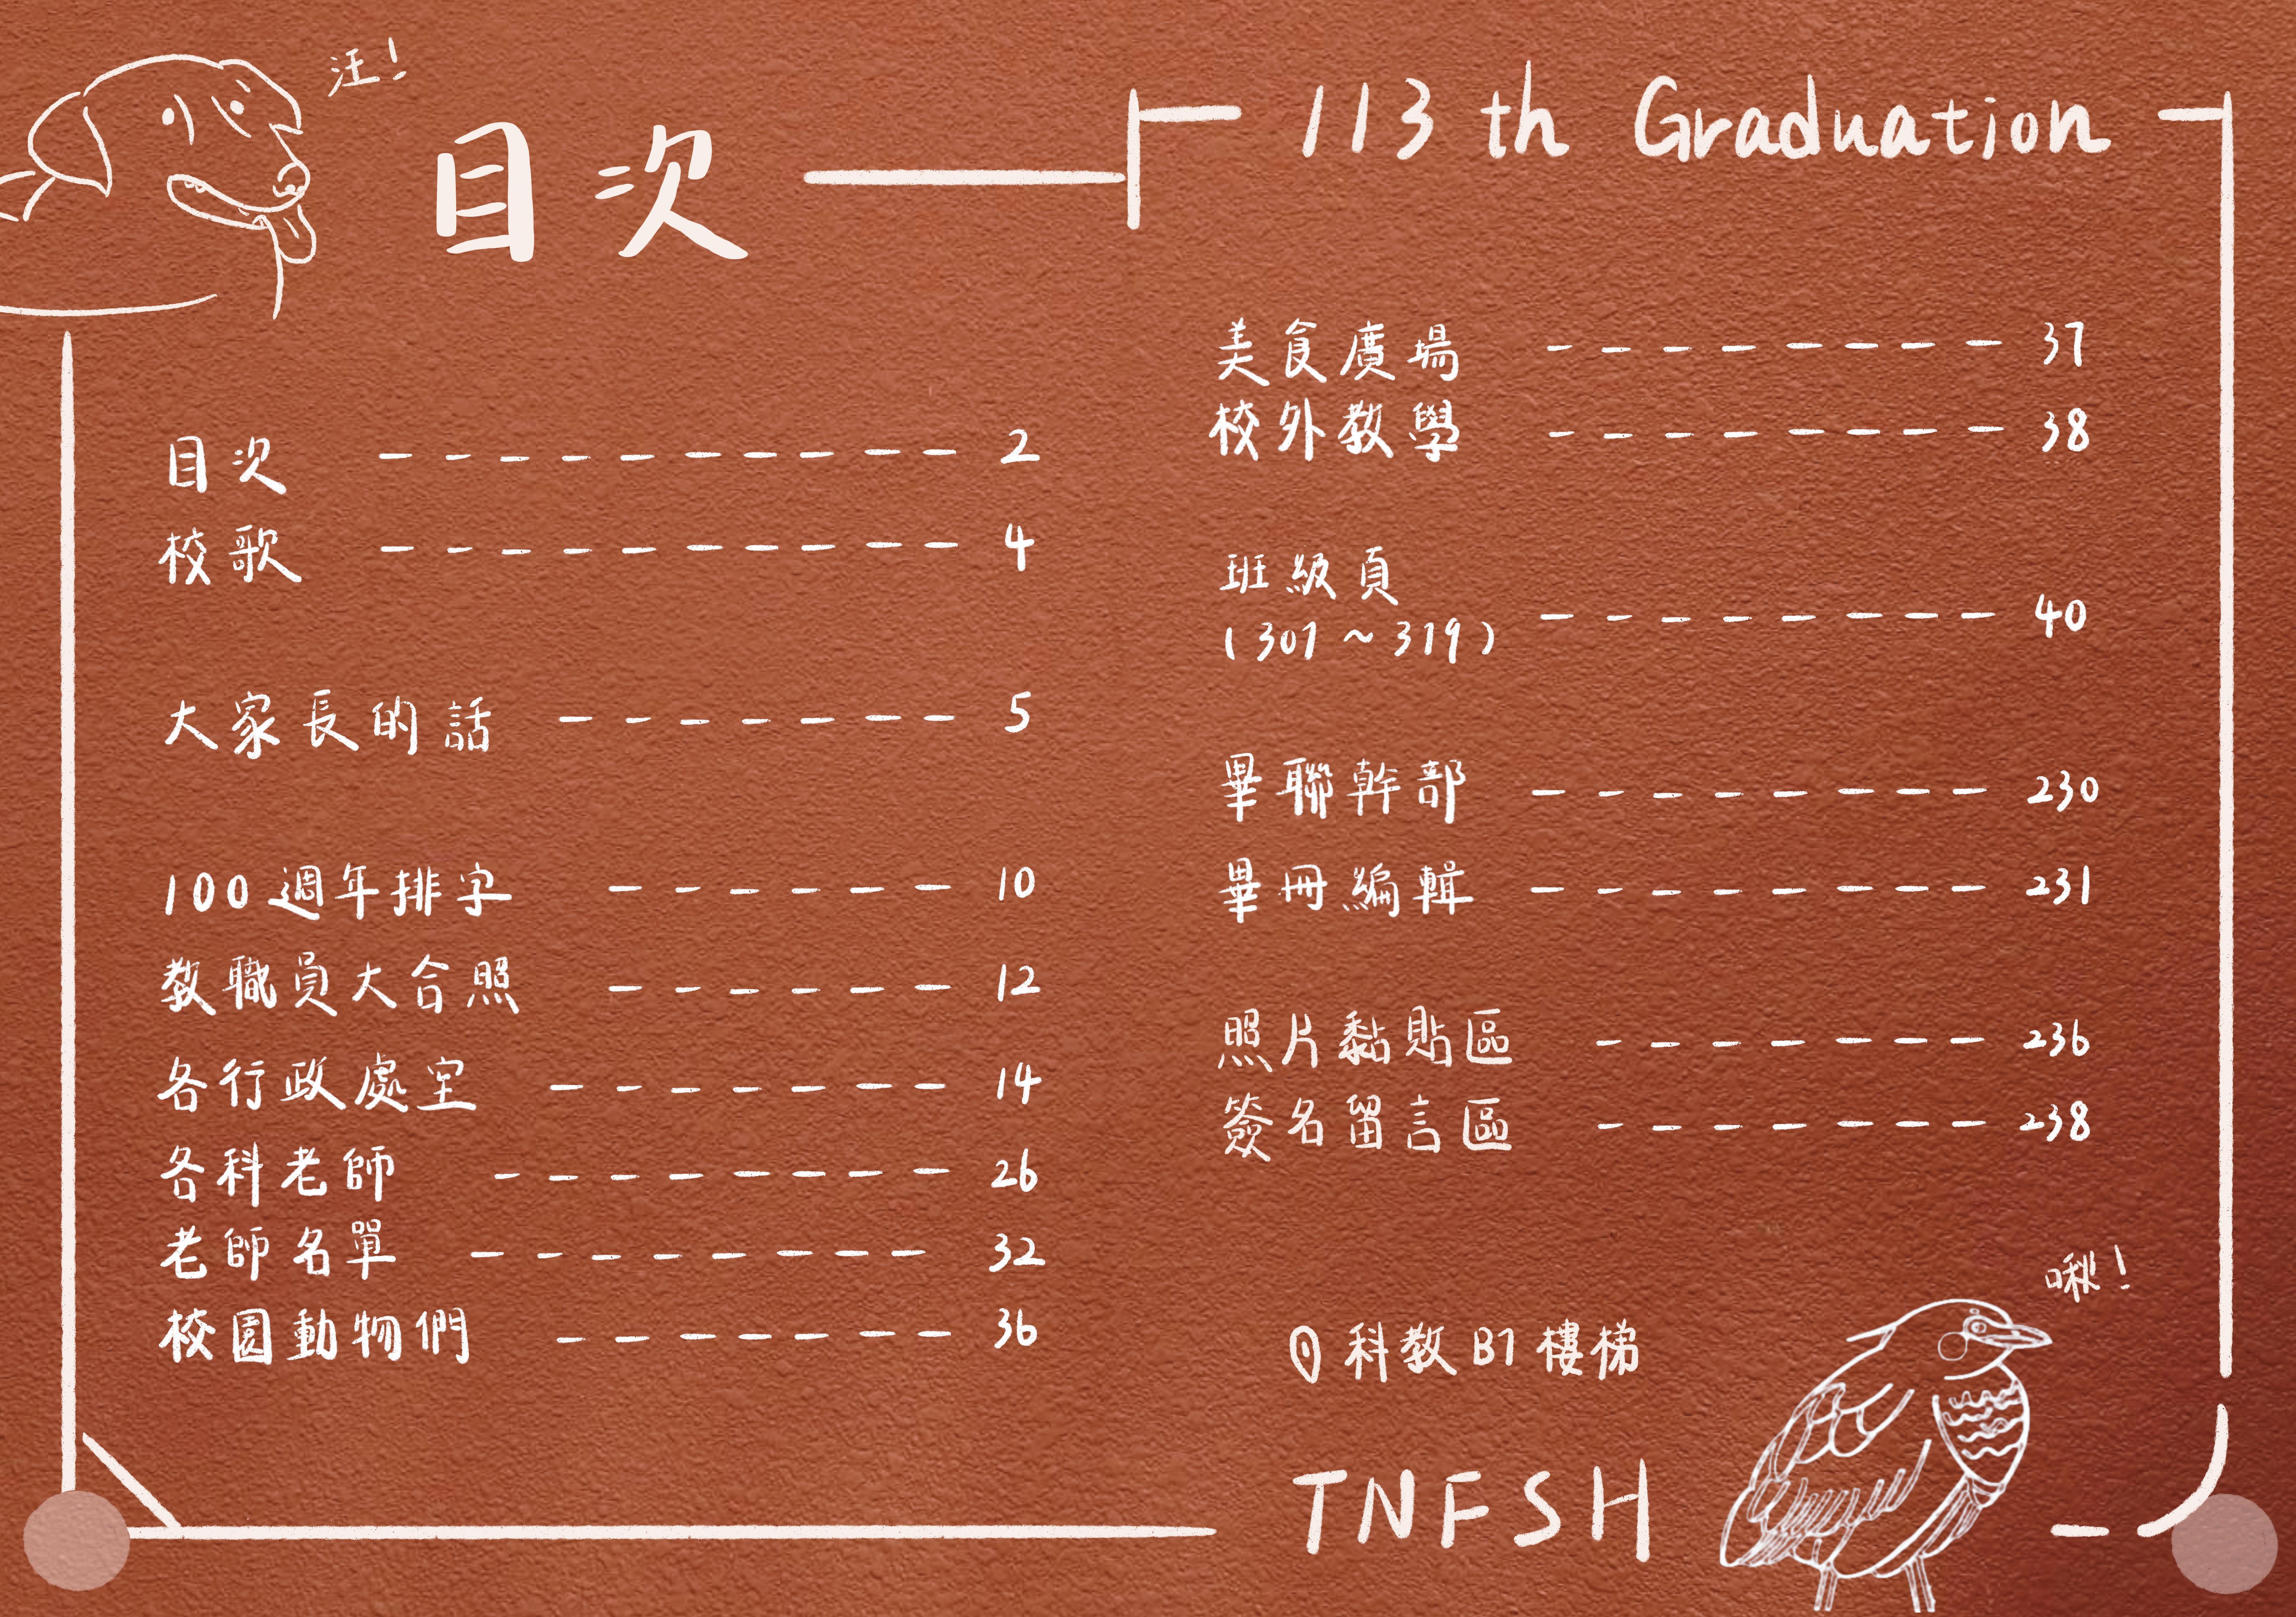 汪!
目次
113 th Graduation
目次 2
校歌 4
大家長的話 5
100週年排字 10
教職員大合照 12
各行政處室 14
各科老師 26
老師名單 32
校園動物們 36
美食廣場 37
校外教學 38
班級頁
(301~319) 40
畢聯幹部 230
畢冊編輯 231
照片黏貼區 236
簽名留言區 238
啾!
科教B1樓梯
TNFSH